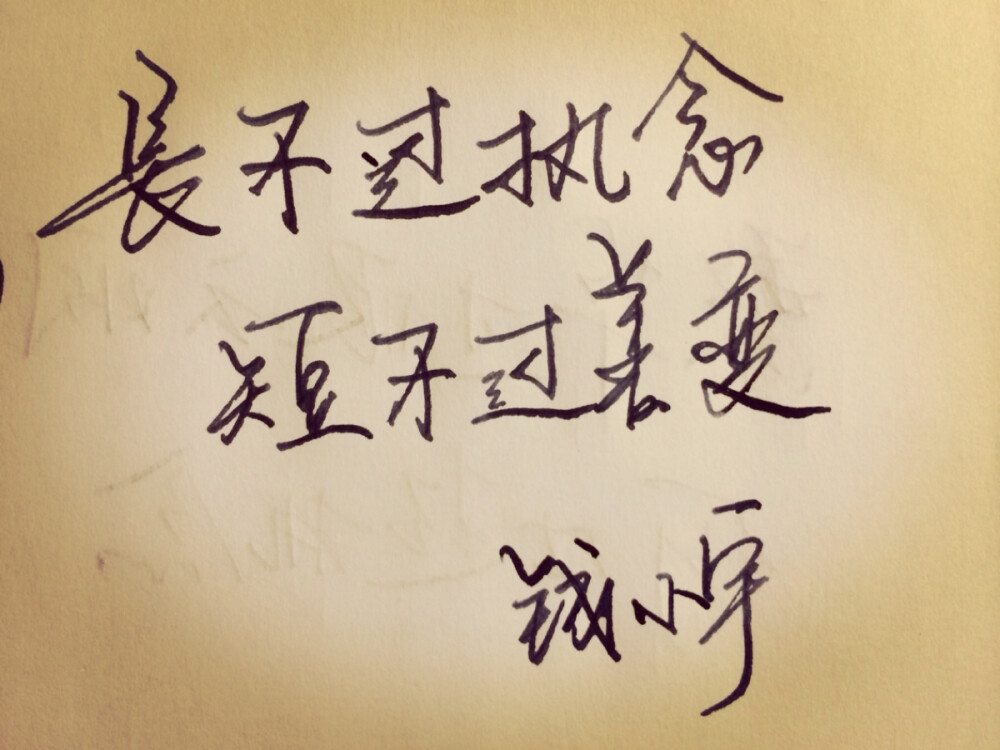 長不过执念
短不过善变
钱小宇